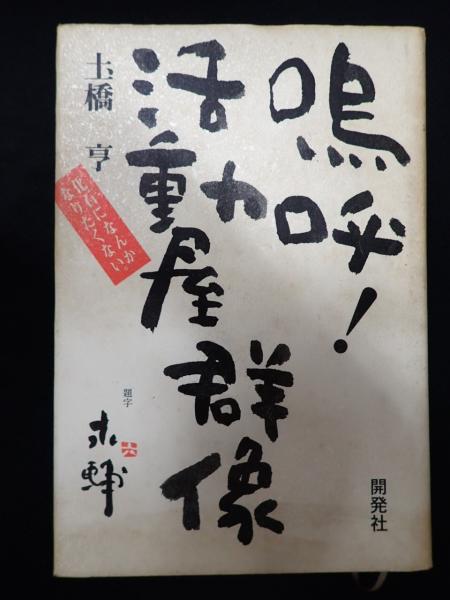 嗚呼!
活動屋
群像
土橋 亨
化石になんか
なりたくない。
題字
開発社